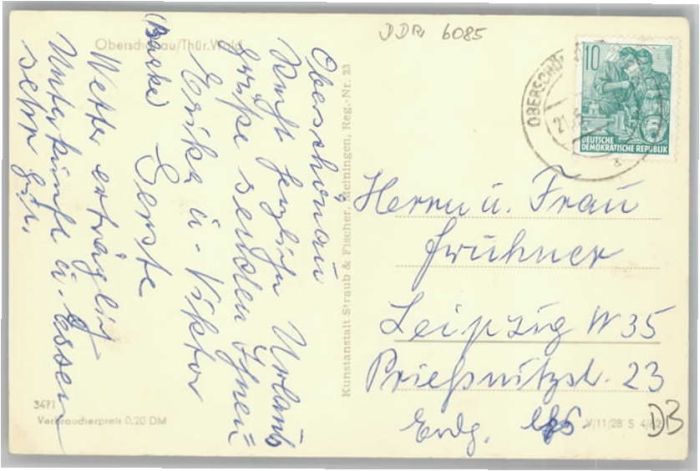 Oberschönau/Thür. Wald
DDR 6085
Oberschönau
Recht herzliche Urlaubs
grüße senden Ihnen
Erika u. Viktor
Gerste
(Backe)
Wetter erträglich
Unterkunft u. Essen
sehr gut.
3471
Verbraucherpreis 0,20 DM
Kunstanstalt Straub & Fischer, Meiningen, Reg.-Nr. 23
OBERSCHÖ
21.
10
DEUTSCHE
DEMOKRATISCHE REPUBLIK
Herrn u. Frau
Frühner
Leipzig W 35
Prießnitzst. 23
Erdg.
V/11/28 S
DB